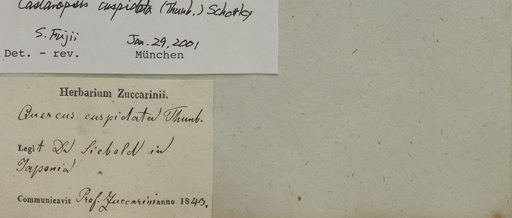 Castanopsis cuspidata (Thunb.) Schottky
S. Fujii Jan. 29, 2001
Det. - rev. München
Herbarium Zuccarinii.
Quercus cuspidata Thunb.
Legit Dr Siebold in
Japonia
Communicavit Prof. Zuccarini anno 1843.